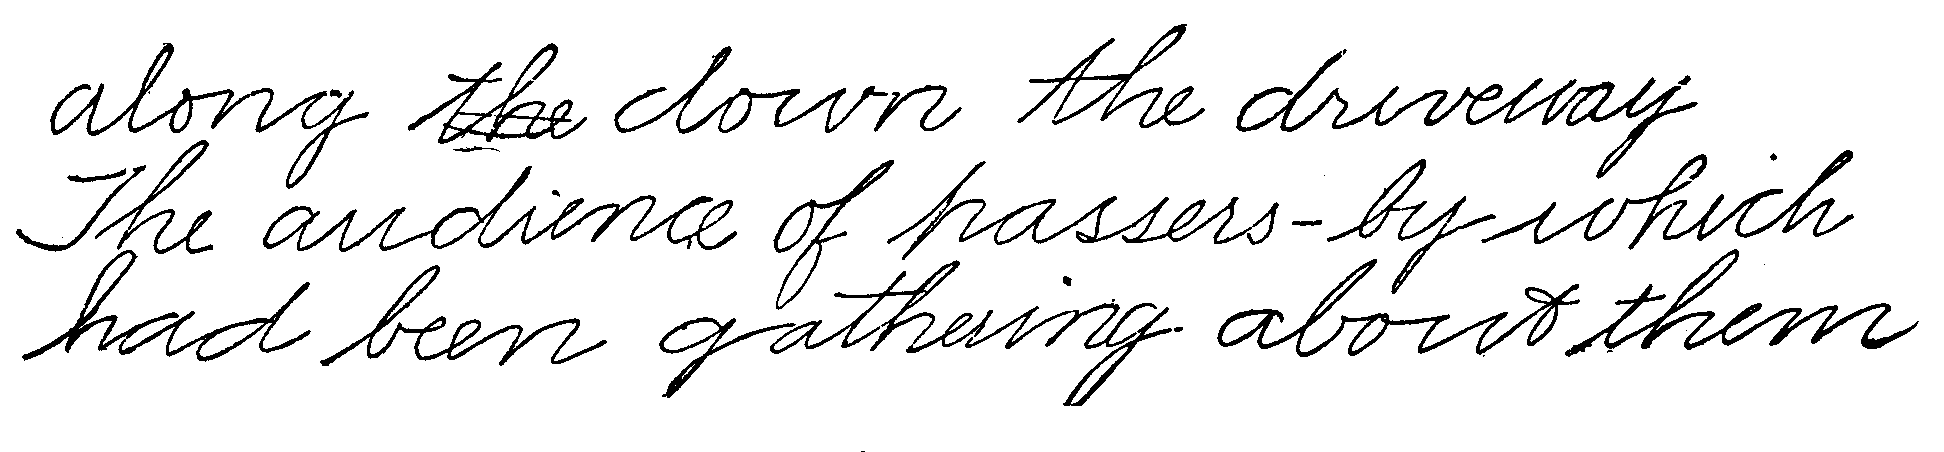 along the down the driveway
The audience of passers-by which
had been gathering about them